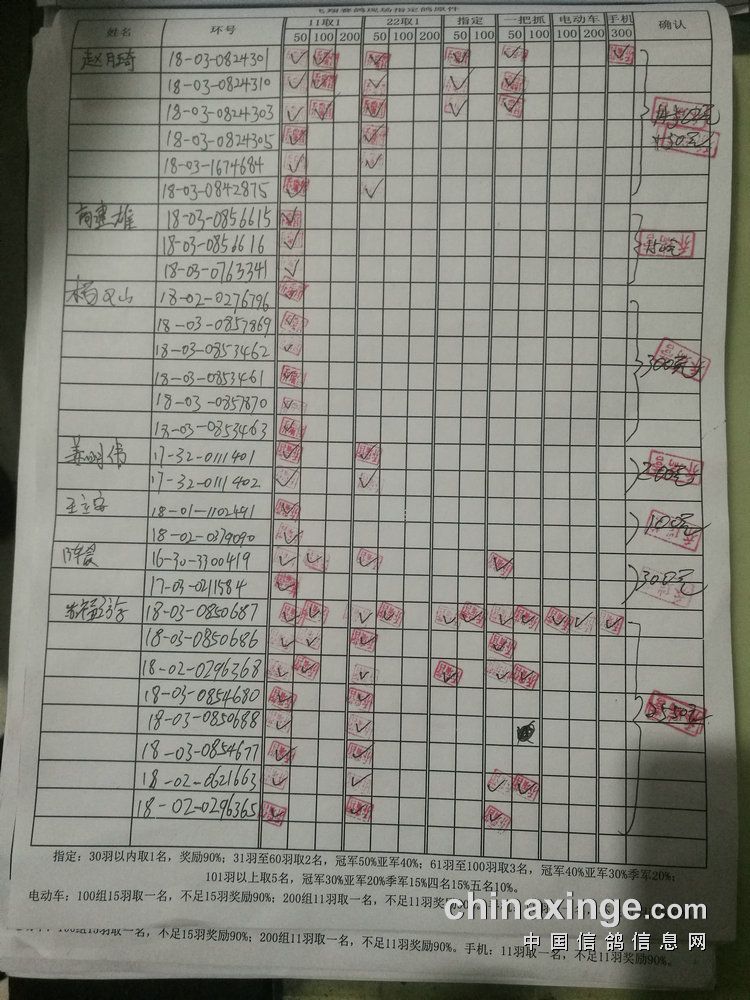 飞翔赛鸽现场指定鸽原件
姓名 环号 11取1 22取1 指定 一把抓 电动车 手机 确认
50 100 200 50 100 200 50 100 50 100 100 200 300
赵月琦 18-03-0824301 ✓ ✓ ✓ ✓ ✓ ✓
18-03-0824310 ✓ ✓ ✓ ✓ ✓
18-03-0824303 ✓ ✓ ✓ ✓ ✓
18-03-0824305 ✓ ✓
18-03-1674684 ✓ ✓
18-03-0842875 ✓ ✓
建雄 18-03-0856615 ✓
18-03-0856616 ✓
18-03-0763341 ✓
山 18-02-0276796 ✓
18-03-0857869 ✓
18-03-0853462 ✓
18-03-0853461 ✓
18-03-0857870 ✓
18-03-0853463 ✓ 300元
姜明伟 17-32-0111401 ✓ ✓
17-32-0111402 ✓ ✓ 200元
王立 18-01-1102491 ✓
18-02-0379090 ✓ 100元
16-30-3300419 ✓ ✓ ✓ ✓
17-03-0211584 ✓ 300元
18-03-0850687 ✓ ✓ ✓ ✓ ✓ ✓ ✓ ✓ ✓ ✓ ✓
18-03-0850686 ✓ ✓ ✓ ✓
18-02-0296368 ✓ ✓ ✓ ✓ ✓ ✓
18-03-0854680 ✓ ✓
18-03-0850688 ✓ ✓
18-03-0854677 ✓ ✓
18-02-0621663 ✓ ✓ ✓ ✓
18-02-0296365 ✓ ✓ ✓
指定：30羽以内取1名，奖励90%；31羽至60羽取2名，冠军50%亚军40%；61羽至100羽取3名，冠军40%亚军30%季军20%；
101羽以上取5名，冠军30%亚军20%季军15%四名15%五名10%。
电动车：100组15羽取一名，不足15羽奖励90%；200组11羽取一名，不足11羽奖励90%
chinaxinge.com
中国信鸽信息网
100组15羽取一名，不足15羽奖励90%；200组11羽取一名，不足11羽奖励90%。手机：11羽取一名，不足11羽奖励90%。